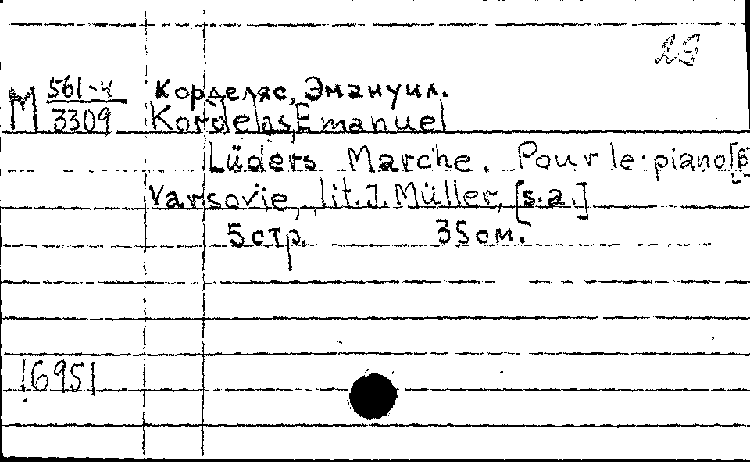 29
M 561-4 Корделяс, Эмануил.
3309 Kordelas, Emanuel
Lüders Marche. Pour le piano [В]
Varsovie, lit. J. Müller, [s.a.]
5 стр. 35 см.
16951